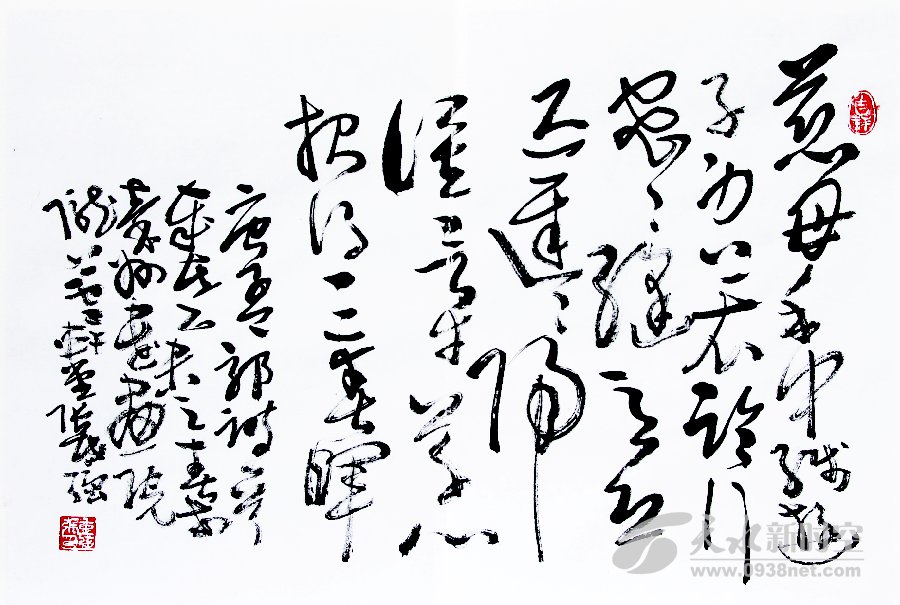 慈母手中线遊
子身上衣临行
密密缝意恐
迟迟归
谁言寸草心
报得三春晖
唐孟郊诗
岁在乙未之春
秦州书画院
吉祥
天水新时空
www.0938net.com